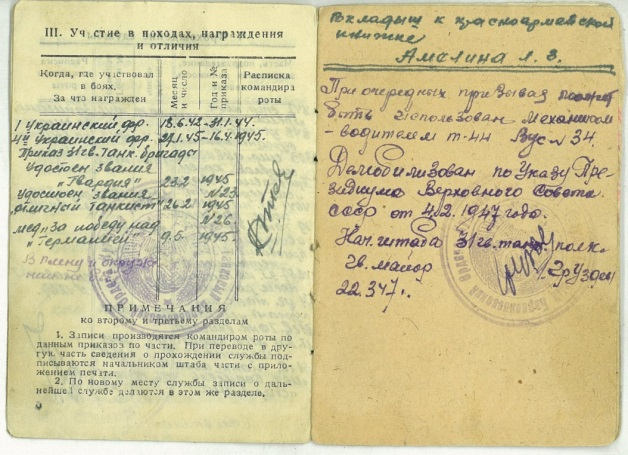 III. Участие в походах, награждения
и отличия
Когда, где участвовал
в боях.
За что награжден
Месяц
и число
Год и №
приказа
Расписка
командира
роты
I Украинский фр. 13.6.43-31.1.44.
4й Украинский фр. 27.1.45-16.4.1945.
Приказ 31 гв. Танк. бригады
Удостоен звания
"Гвардия" 23.2 1945
№23.
Удостоен звания
"Отличный танкист" 26.2 1945
№26.
мед. "За победу над
Германией" 9.5. 1945.
В плену и окруже-
нии не
ПРИМЕЧАНИЯ
ко второму и третьему разделам
1. Записи производятся командиром роты по
данным приказов по части. При переводе в дру-
гую часть сведения о прохождении службы под-
писываются начальником штаба части с прило-
жением печати.
2. По новому месту службы записи о даль-
нейшей службе делаются в этом же разделе.
Вкладыш к красноармейской
книжке
Амалина Л. З.
При очередных призывах может
быть использован механиком
-водителем т-44 Вус-№34.
Демобилизован по Указу Пре-
зидиума Верховного Совета
СССР от 4.2.1947 года.
Нач. штаба 31 гв. танк полк.
гв. майор Груздев
22.3.47 г.